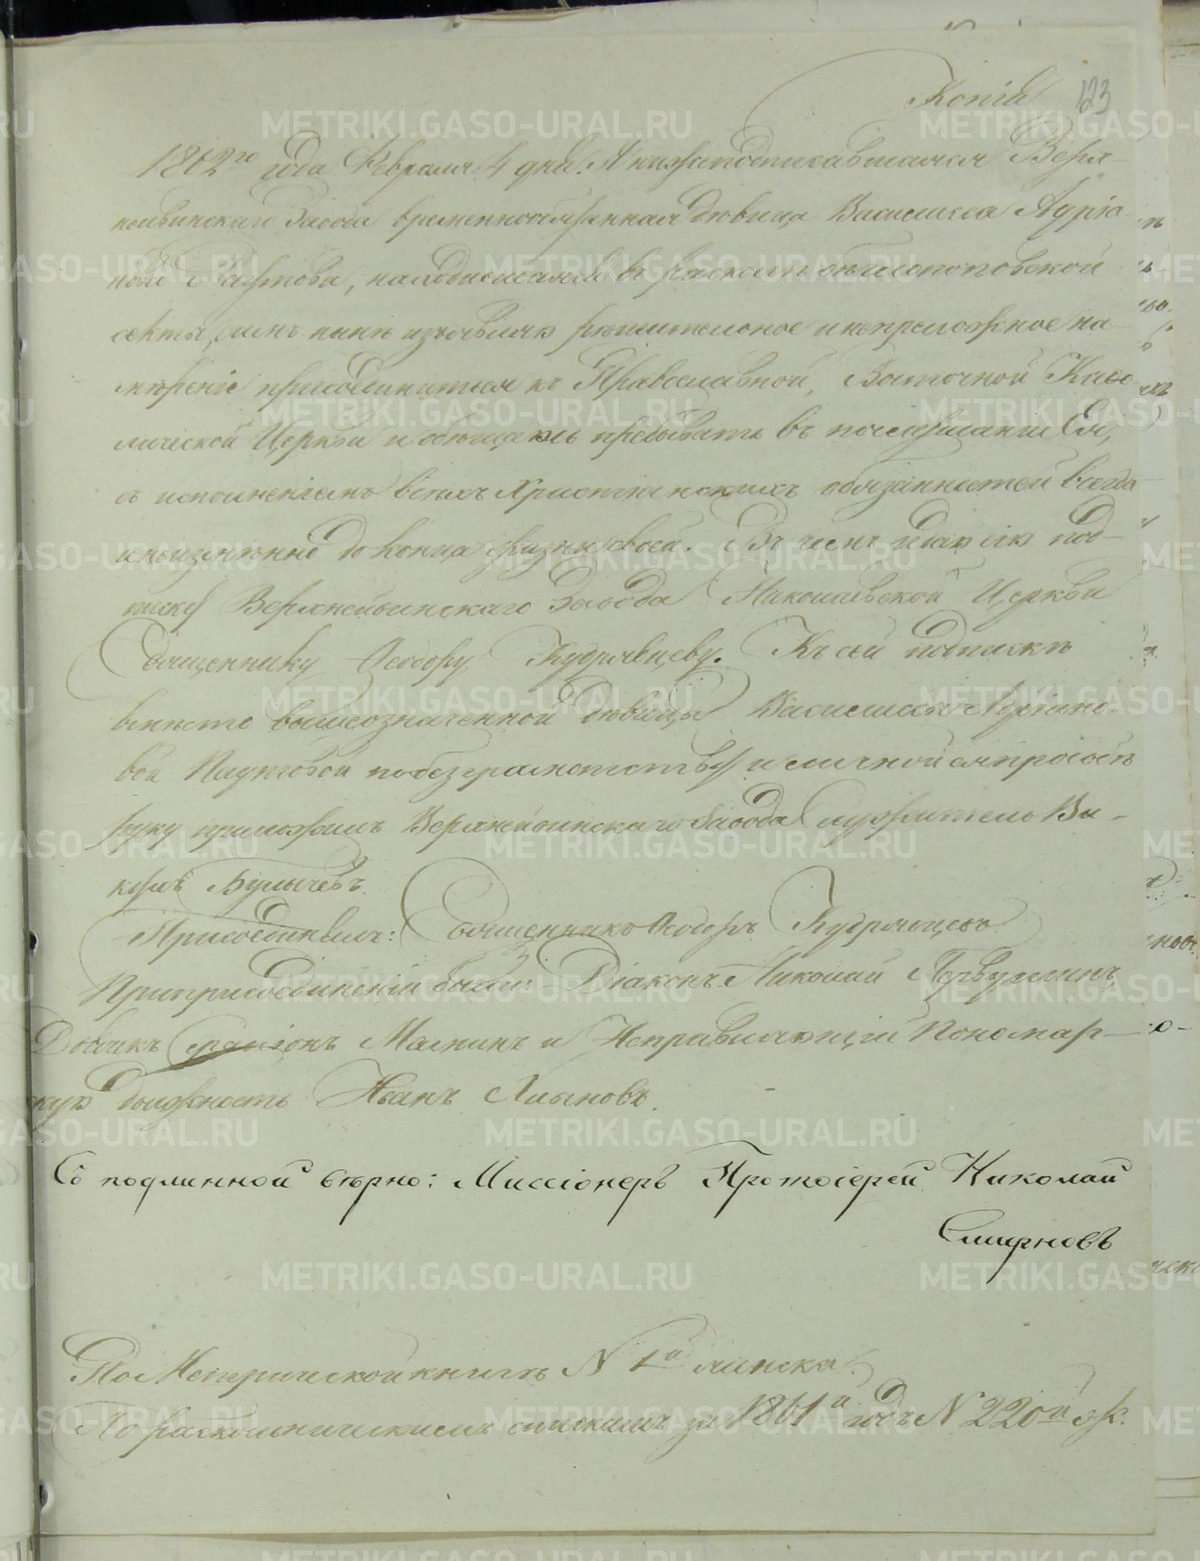 Копія 123
1862го года Февраля 4 дня. Я нижеподписавшаяся Верх-
нейвинскаго Завода временнообязанная девица Василисса Адріа
нова Паутова, находившаяся в расколе беглопоповской
секты, симъ ныне изъявляю решительное и непреложное на
мѣреніе присоединиться къ Православной, Восточной Каѳо
лической Церкви и обещаюсь пребывать въ послушаніи Ея,
съ исполненіемъ всехъ Христіанскихъ обязанностей всегда
неизменно до конца жизни своей. Въ чемъ и даю сію под-
писку Верхнейвинскаго Завода Николаевской Церкви
Священнику Ѳеодору Кудрявцеву. Къ сей подписке
вместо вышеозначенной девицы Василиссы Адріано
вой Паутовой по безграмотству и личной ея просьбе
руку приложилъ Верхнейвинскаго Завода Служитель Ви-
Булычевъ.
Присоединилъ: Священникъ Ѳеодоръ Кудрявцевъ
При присоединеніи были: Діаконъ Николай Первушинъ,
Дьячикъ Серапіонъ Малнинъ и Исправляющій Пономар-
скую должность Иванъ
Съ подлинной верно: Миссіонеръ Протоіерей Николай
Смирновъ
По Метрической книге N 1й женска.
По раскольническимъ спискамъ за 1861й годъ N 220й ж.
METRIKI.GASO-URAL.RU